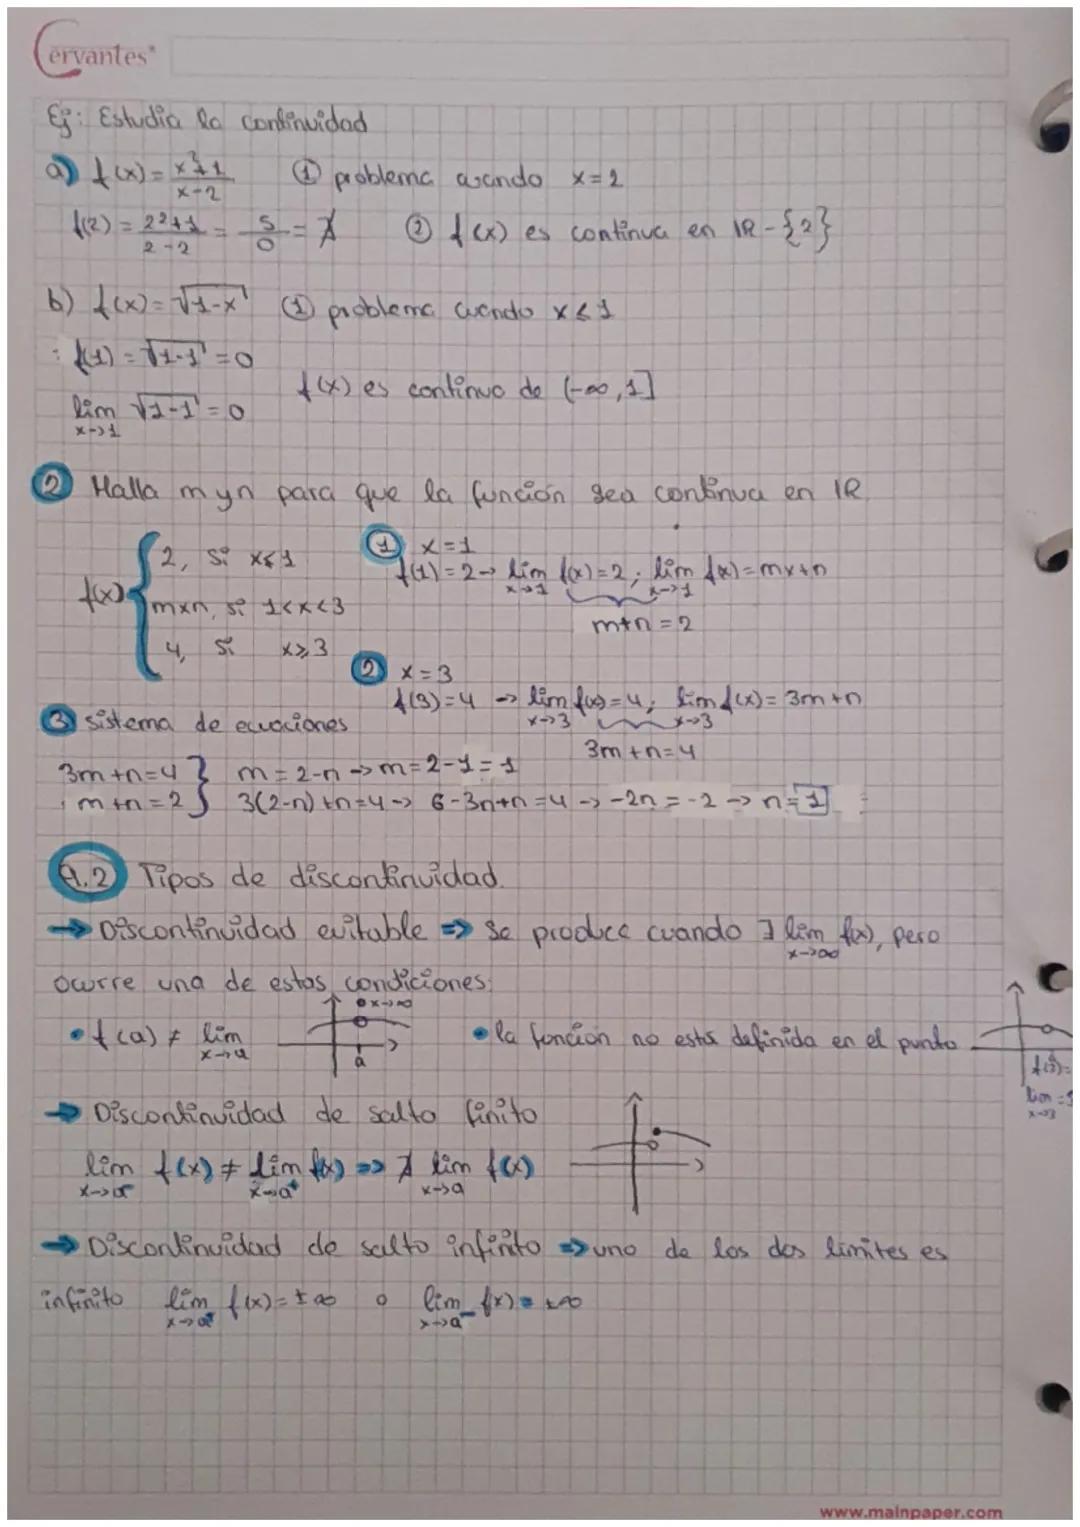 Cervantes®
Ej: Estudia la continuidad
a) f(x) = x²+1 / x-2   ① problema cuando x=2
f(2) = 2²+1 / 2-2 = 5/0 = ∄   ② f(x) es continua en IR - {2}
b) f(x) = √1-x   ① problema cuando x≤1
f(1) = √1-1 = 0
f(x) es continuo de (-∞,1]
lim x→1 √1-1 = 0
② Halla m y n para que la función sea continua en IR.
f(x) { 2, si x≤1
mxn, si 1<x<3
4, si x≥3
① x=1
f(1)=2 → lim x→1 f(x)=2; lim x→1 f(x)=mx+n
m+n=2
② x=3
f(3)=4 → lim x→3 f(x)=4; lim x→3 f(x)=3m+n
3m+n=4
③ sistema de ecuaciones
3m+n=4 } m=2-n → m=2-1=1
m+n=2 } 3(2-n)+n=4 → 6-3n+n=4 → -2n=-2 → n=1
9.2 Tipos de discontinuidad.
→ Discontinuidad evitable => Se produce cuando ∃ lim x→∞ f(x), pero
ocurre una de estas condiciones:
x→∞
• f(a) ≠ lim x→a
a
• la función no está definida en el punto
f(3)=
lim x→3 =
→ Discontinuidad de salto finito
lim f(x) ≠ lim x→a⁺ f(x) => ∄ lim x→a f(x)
→ Discontinuidad de salto infinito => uno de los dos límites es
infinito lim x→a⁺ f(x)=±∞ o lim x→a⁻ f(x)=±∞
www.mainpaper.com